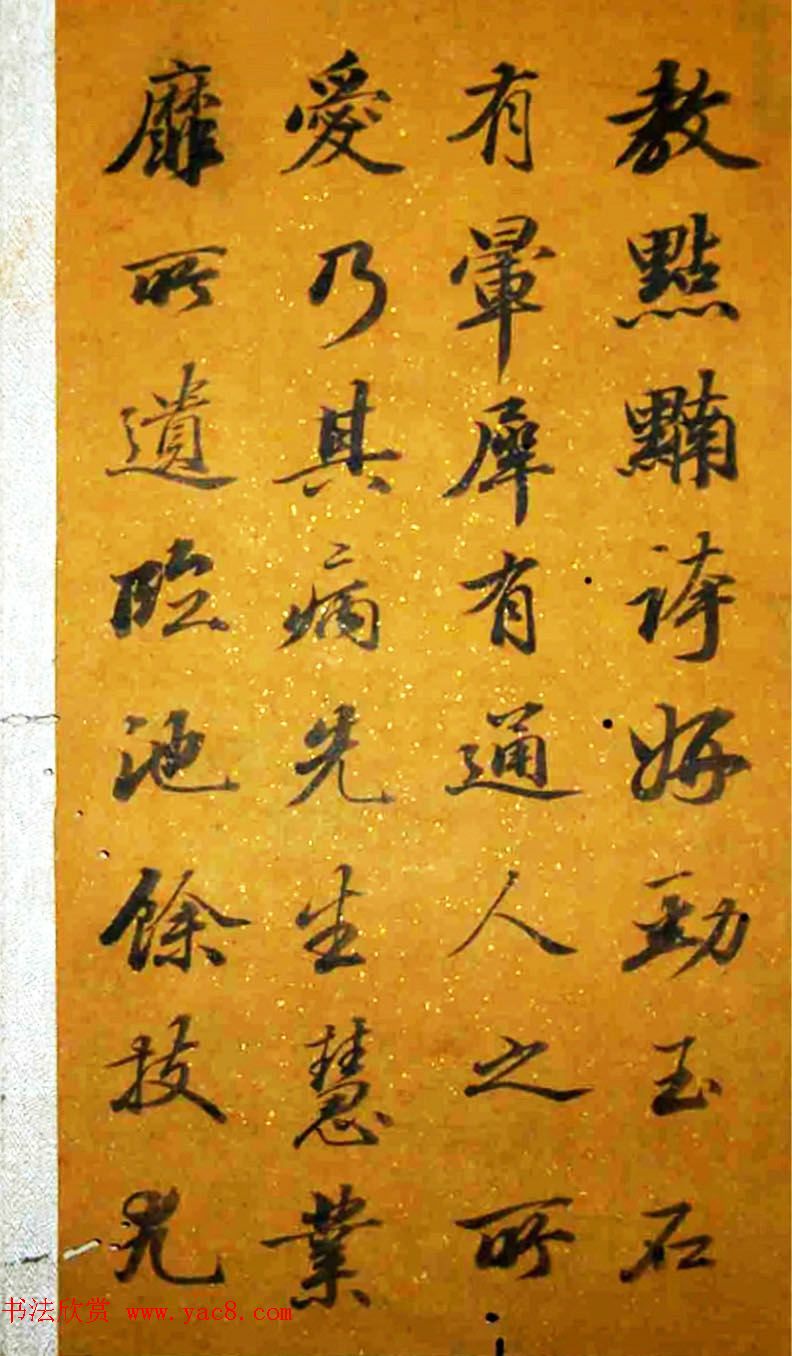 教點黼誇妍勁玉石
有暈犀有通人之所
愛乃其病先生慧業
靡所遺臨池餘技尤
书法欣赏 www.yac8.com